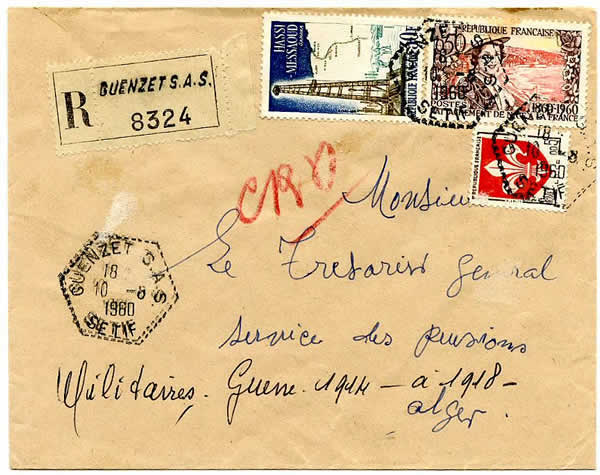 GUENZET S.A.S.
R 8324
HASSI-MESSAOUD
SAHARA
30F
RÉPUBLIQUE FRANÇAISE
0,50
POSTES 1860-1960
RATTACHEMENT DE NICE A LA FRANCE
RÉPUBLIQUE FRANÇAISE
GUENZET S.A.S
18
10 -8
1960
SETIF
Monsieu
Le Tresorier General
service des pensions
Militaires. Guerre. 1914 - à 1918 -
alger.